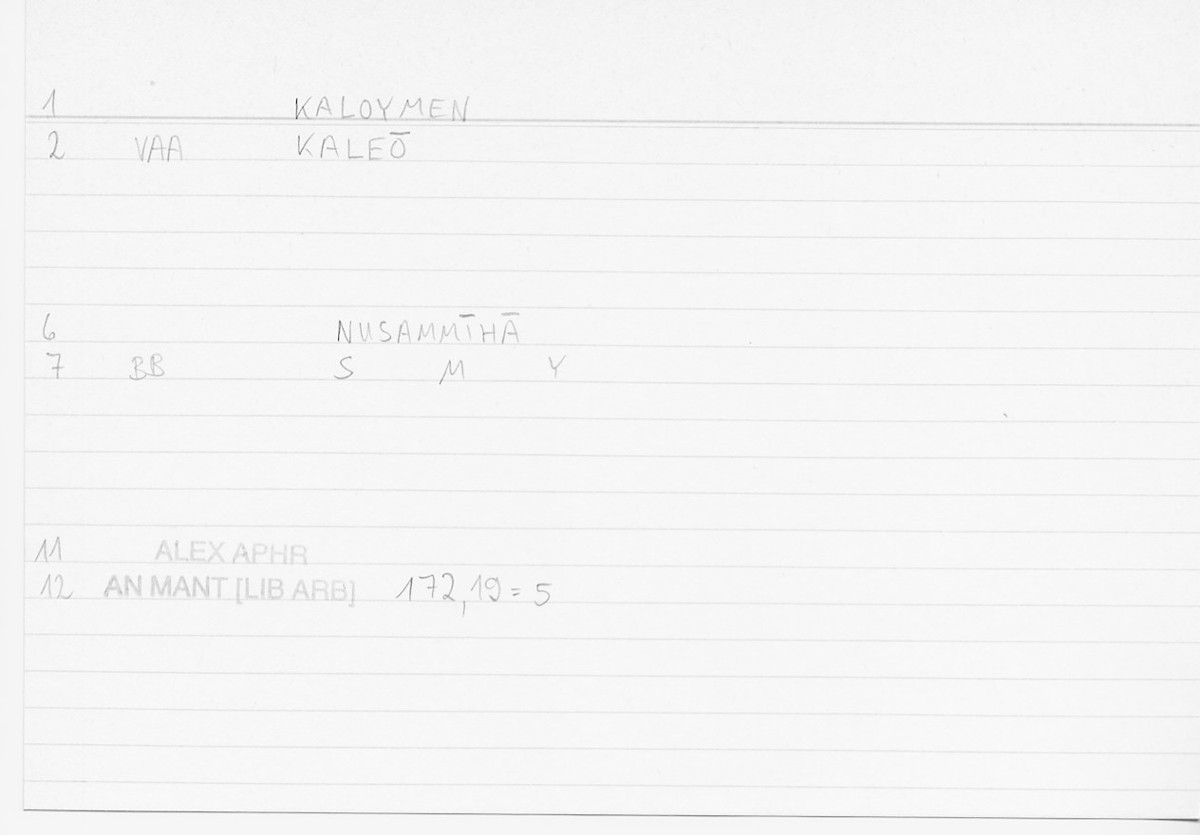 1 KALOYMEN
2 VAA KALEŌ
6 NUSAMMĪHĀ
7 BB S M Y
11 ALEX APHR
12 AN MANT [LIB ARB] 172,19=5